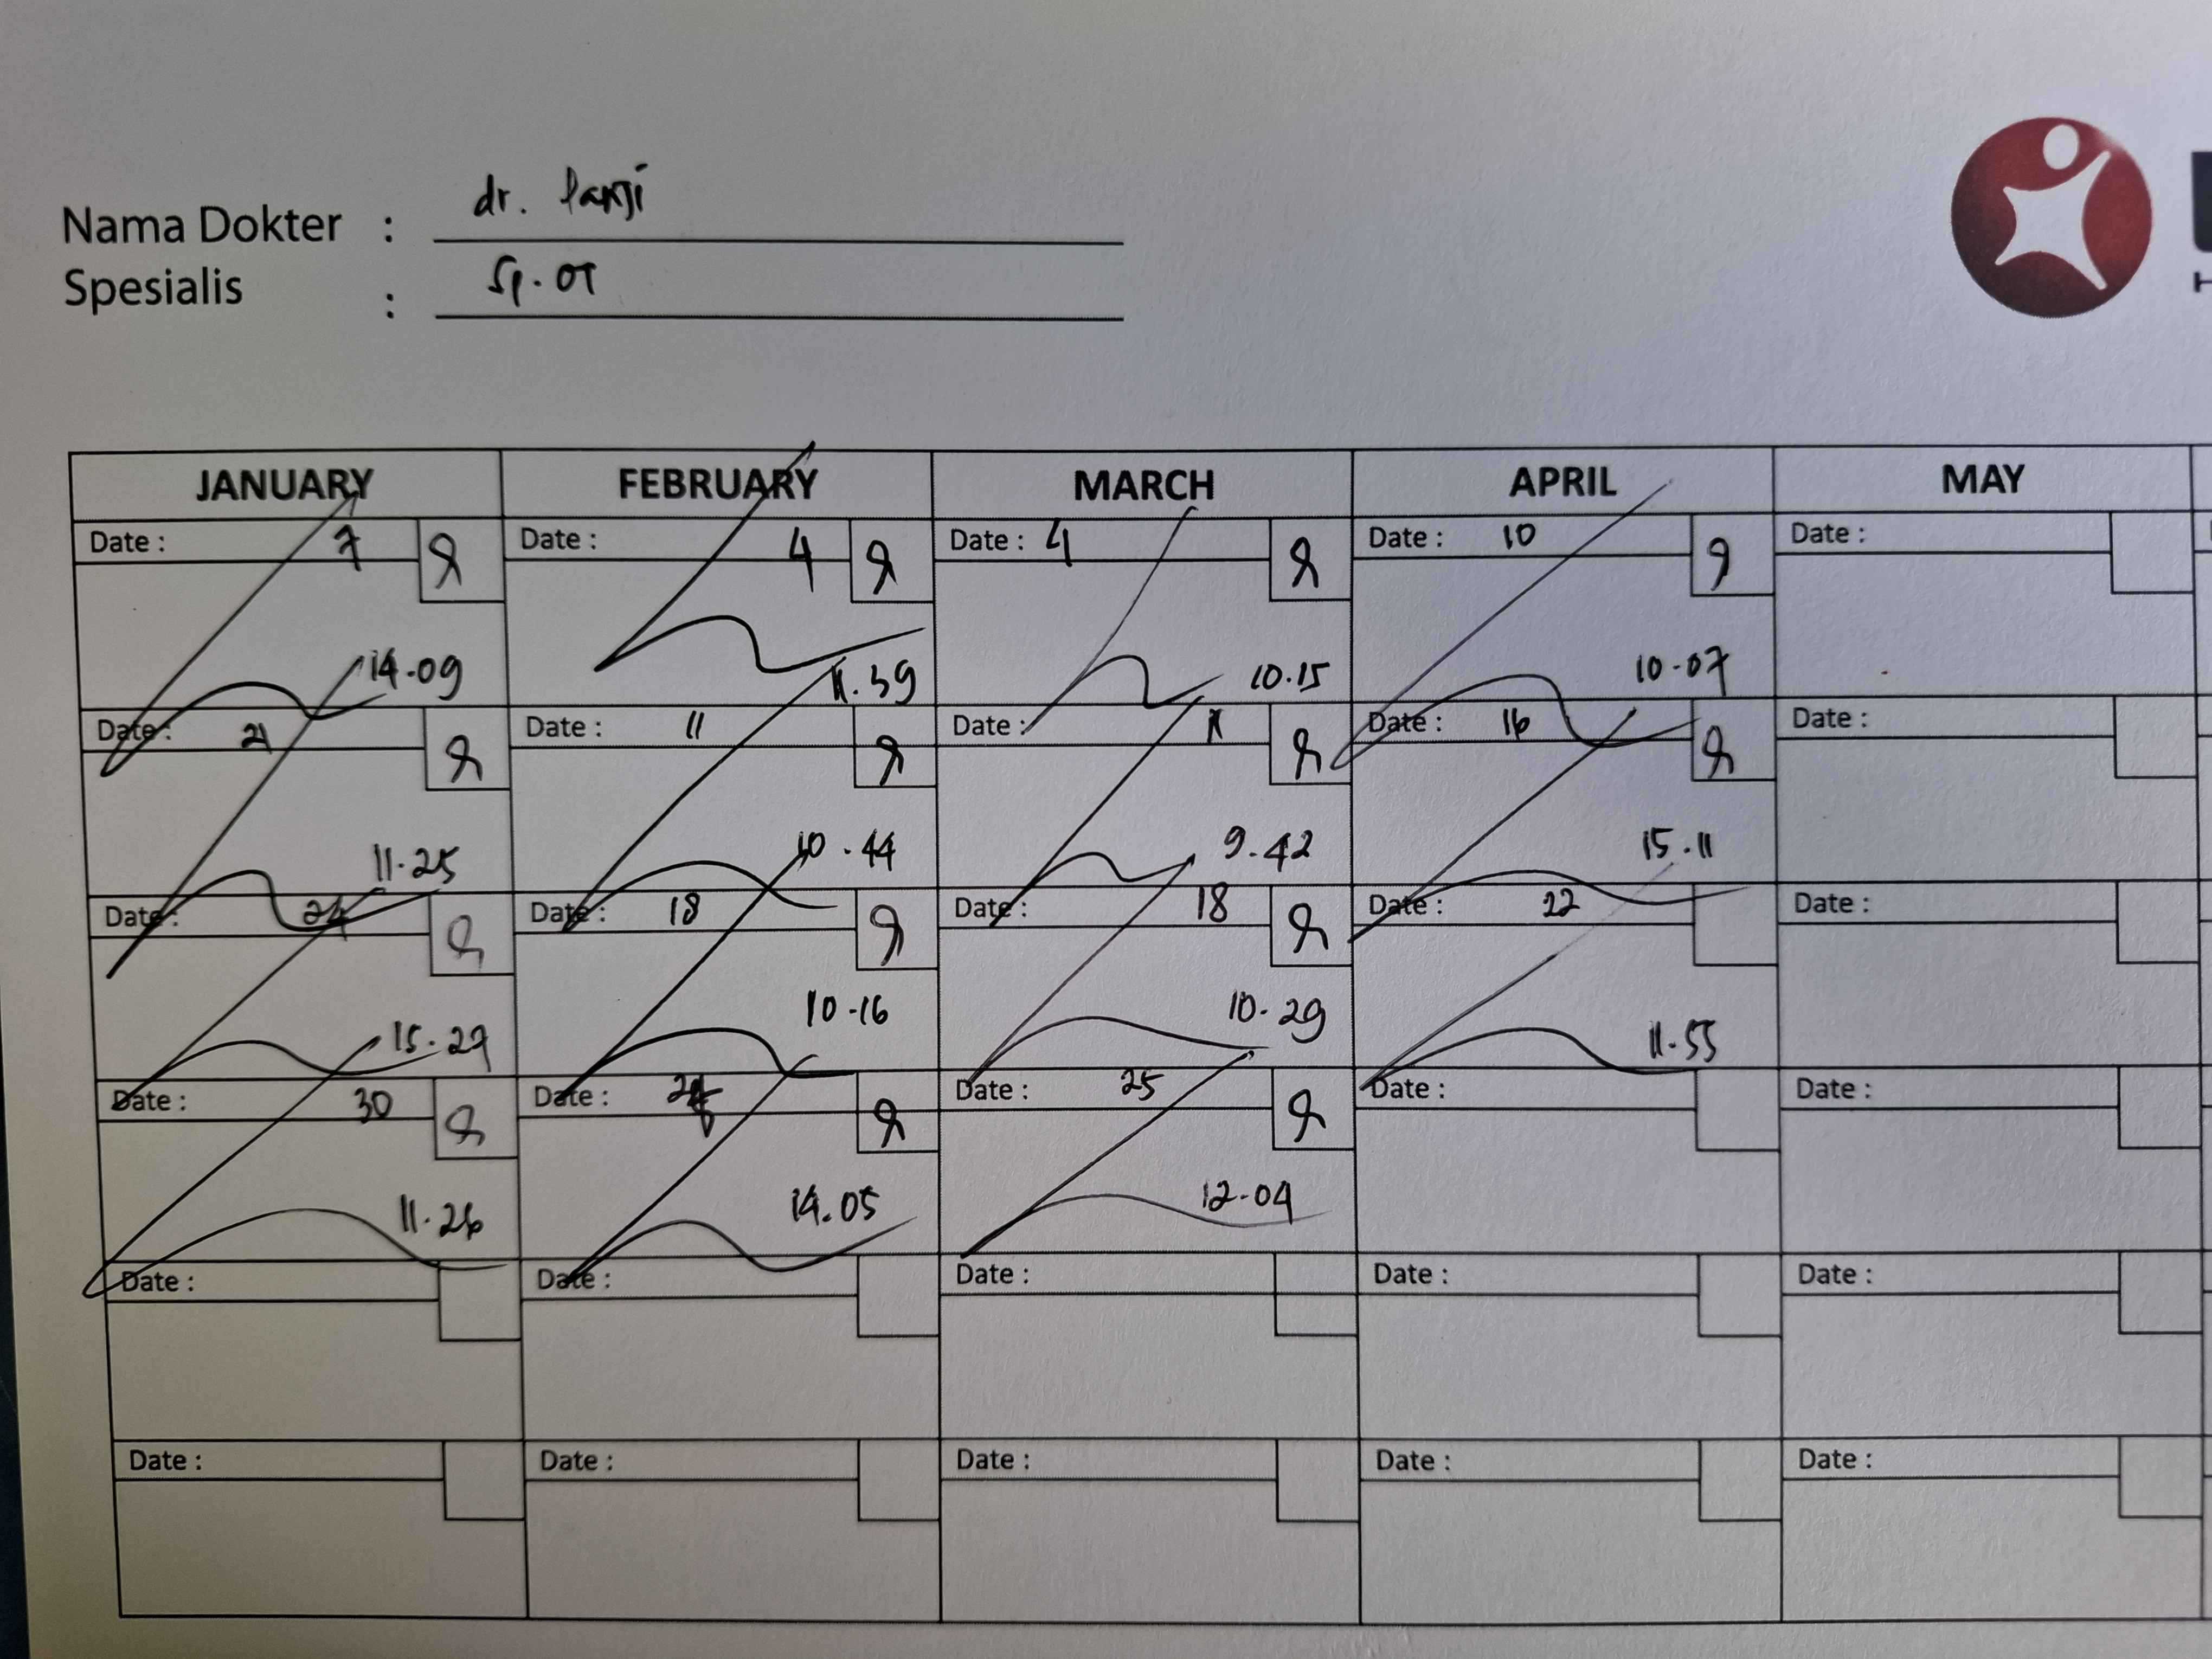 Nama Dokter : dr. Panji
Spesialis : Sp. OT
JANUARY FEBRUARY MARCH APRIL MAY
Date : 7 Date : 4 Date : 4 Date : 10 Date :
14.09 11.39 10.15 10.07
Date : 21 Date : 11 Date : Date : 16 Date :
11.25 10.44 9.42 15.11
Date : 24 Date : 18 Date : 18 Date : 22 Date :
15.27 10.16 10.29 11.55
Date : 30 Date : Date : 25 Date : Date :
11.26 14.05 12.04
Date : Date : Date : Date : Date :
Date : Date : Date : Date : Date :